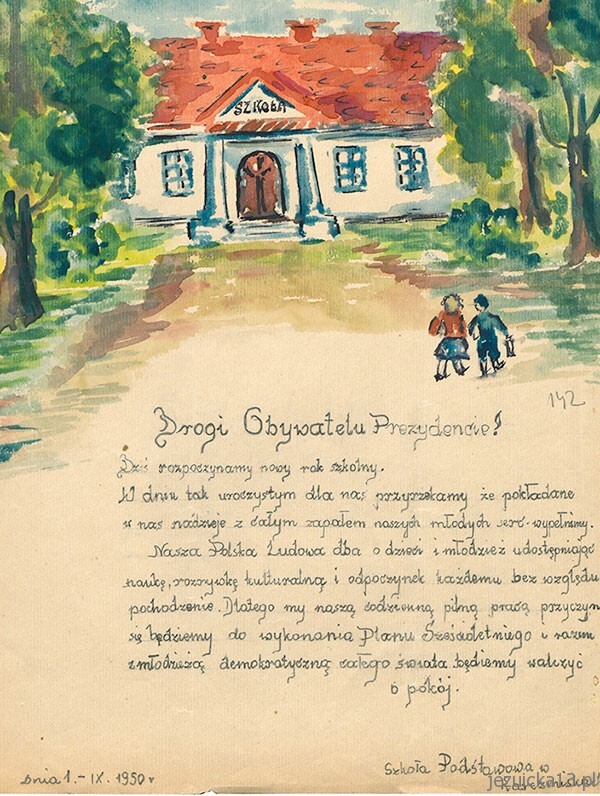 SZKOŁA
142
Drogi Obywatelu Prezydencie!
Dziś rozpoczynamy nowy rok szkolny.
W dniu tak uroczystym dla nas przyrzekamy że pokładane
w nas nadzieje z całym zapałem naszych młodych serc wypełnimy.
Nasza Polska Ludowa dba o dzieci i młodzież udostępniając
naukę, rozrywkę kulturalną i odpoczynek każdemu bez względu
pochodzenie. Dlatego my naszą codzienną pilną pracą przyczyn
się będziemy do wykonania Planu Sześcioletniego i razem
z młodzieżą demokratyczną całego świata będziemy walczyć
o pokój.
dnia 1.-IX. 1950 r
Szkoła Podstawowa w
jezuicka13.pl